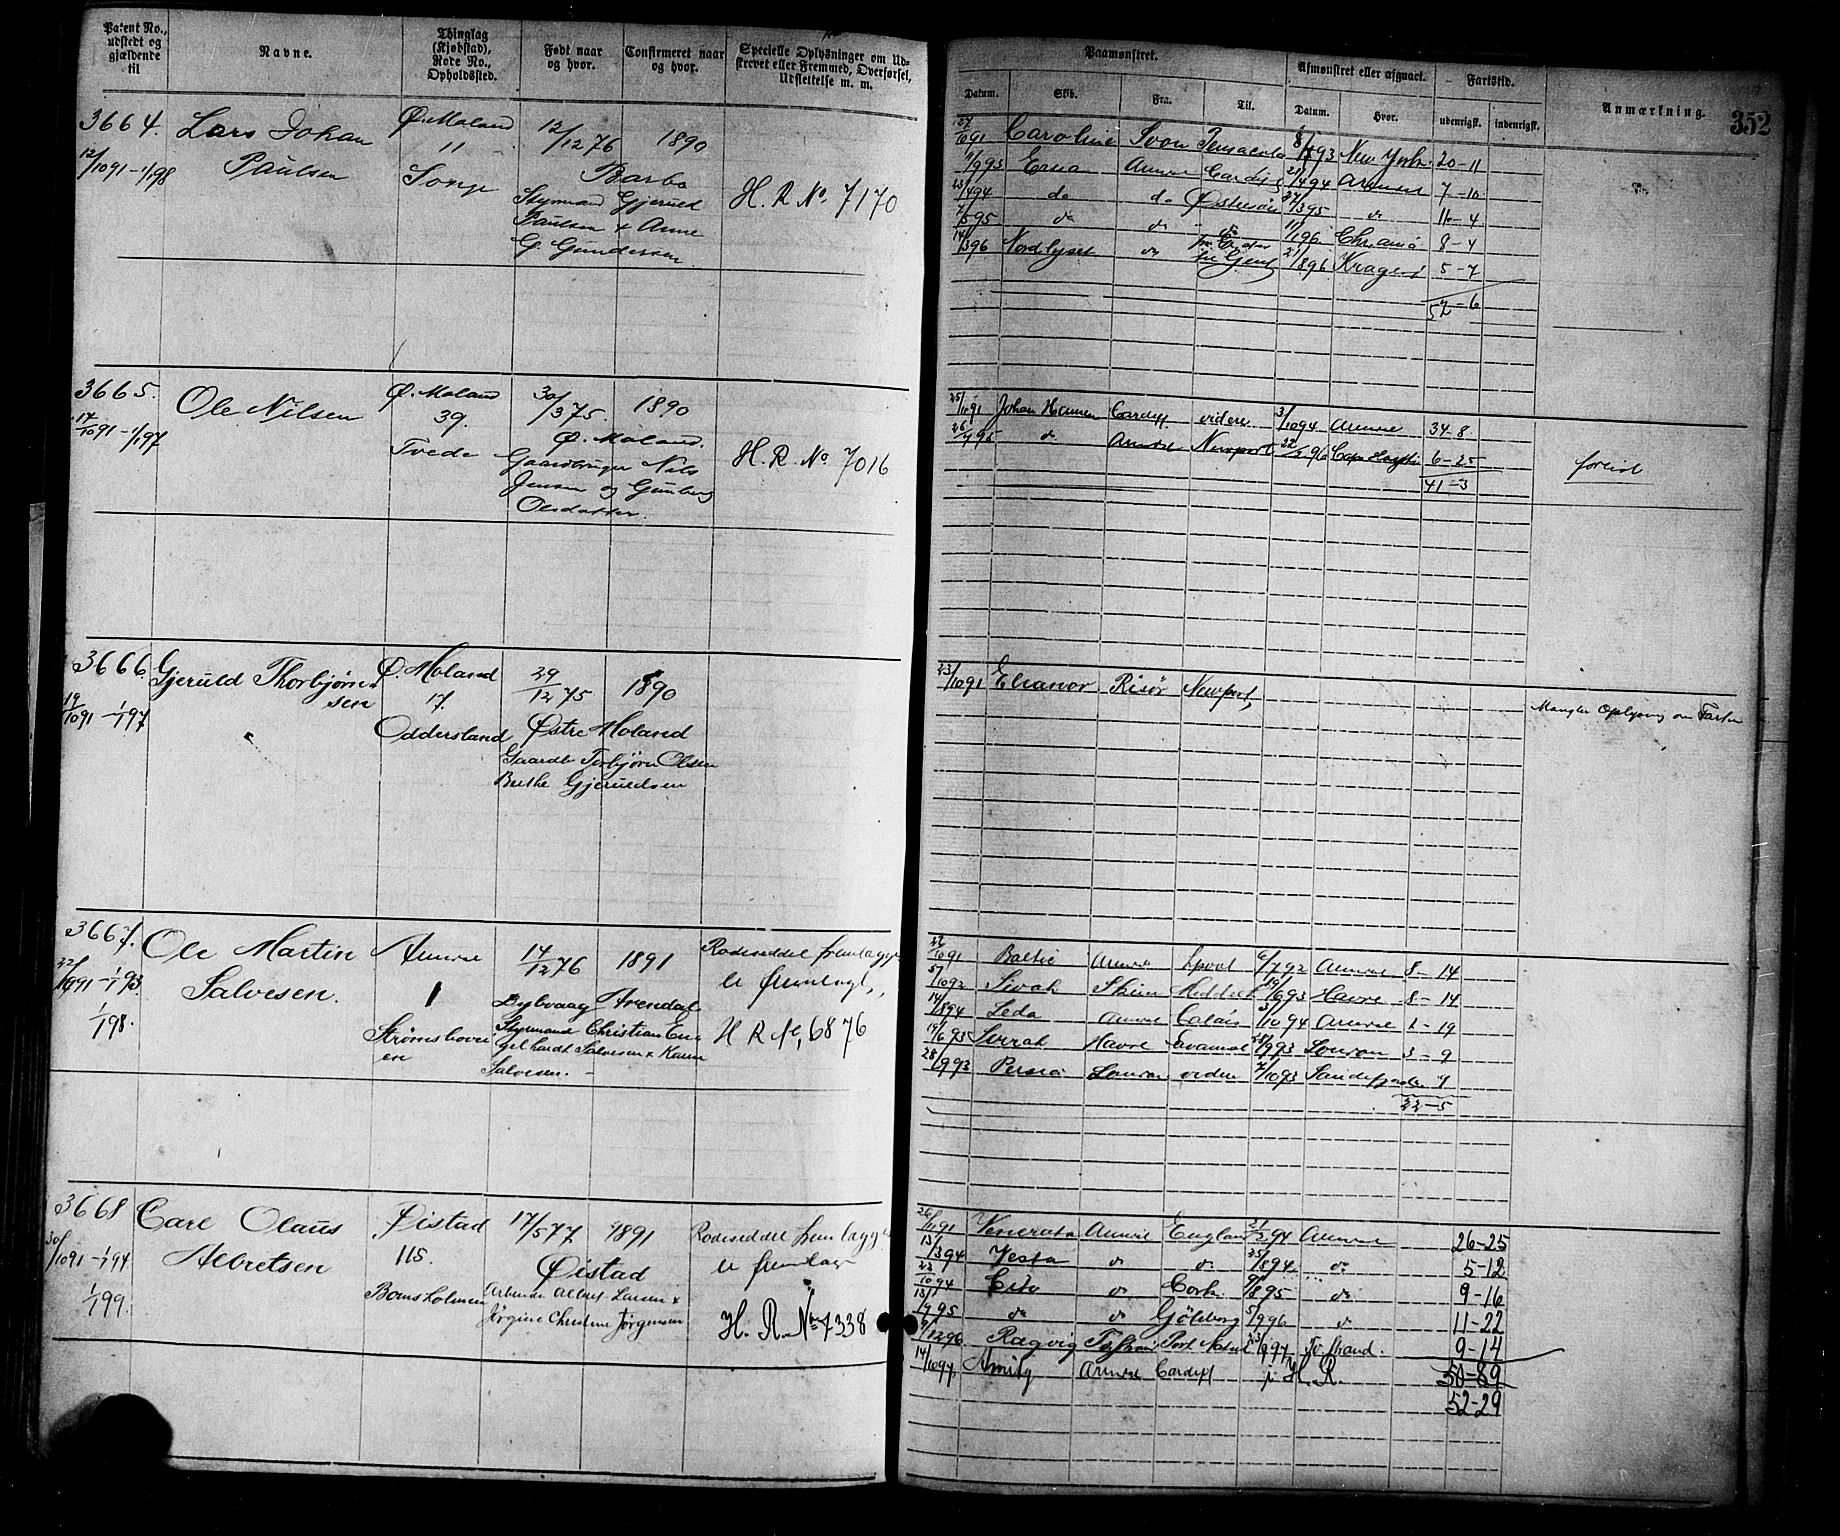 Patent No., udstedt og gjældende til
Navne.
Thinglag (Kjøbstad), Rode No., Opholdssted.
Født naar og hvor.
Confirmeret naar og hvor.
Specielle Oplysninger om Udskrevet eller Fremmed, Overførsel, Udslettelse m. m.
Paamønstret.
Datum.
Skib.
Fra.
Til.
Afmønstret eller afgaaet.
Datum.
Hvor.
Fartstid.
udenrigsk.
indenrigsk.
Anmærkning.
352
3664. Lars Johan Ø. Moland 12/12 76 1890
12/10 91 - 1/1 98 Paulsen 11 Barbo
Songe Styrmand Gjeruld H. R. No. 7170
Paulsen & Anne
G. Gundersen
27/10 91 Caroline Pensacola 93 New York 20-11
11/9 93 Arendal Cardiff 21/4 94 Arendal 7-10
23/4 94 do do Østersøen 27/3 95 do 11-4
7/5 95 do do do 11/1 96 Chrania 8-4
14/3 96 Nordlyset do 21/8 96 Kragerø 5-7
52-6
3665. Ole Nilsen Ø. Moland 30/3 75 1890
17/10 91 - 1/1 97 39. Ø. Moland.
Tvede Gaardbruger Nils H. R. No 7016
Jensen og Gunborg
Olsdatter.
25/10 91 Johan Hansen Cardiff videre 3/10 94 Arendal 34-8
26/7 95 do Arendal Newport 22/2 96 6-25 forlist
41-3
3666. Gjeruld Thorbjørnsen Ø. Moland 29/12 75 1890
19/10 91 - 1/1 97 17.
Oddersland Østre Moland
Gaardb. Torbjørn Olsen
Berthe Gjeruldsen
23/10 91 Eleanor Risør Newport,
Mangler Oplysning om Farten
3667. Ole Martin 14/12 76 1891 Rodeseddel fremlagges
22/10 91 - 1/1 93. Salvesen. 1 Dybvaag Arendal er fremlagt,
1/1 98. Strømsbover Styrmand Christian Eng H R No 6876
en gelhardt Salvesen & Karen
Salvesen. -
22/10 91 Baltic Arendal Lpool 6/7 92 Arendal 8-14
10 92 Skien 93 Havre 8-14
14/8 94 Leda Arendal Calais 3/10 94 Arendal 1-19
19/6 93 Havre 93 3-9
28/9 93 Persia videre 7/10 93 Sandefjorden 9
22-5
3668 Carl Olaus Øistad 17/5 77 1891 Rodeseddel fremlagges
30/10 91 - 1/1 94 Albretsen 115. Øistad er fremlagt
1/1 99. Bomsholmen Arbeider Albret Larsen &
Jørgine Christine Jørgensen H. R. No 7338
26/11 91 Venerata Arendal England 21/2 94 Arendal 26-25
13/3 94 Vesta do do 25/8 94 do 5-12
23/10 94 do Cork 95 do 9-16
13/9 95 do do Göteborg 5/9 96 do 11-22
12 96 Ragvig Port Natal 23/9 97 9-14
14/10 97 Arendal Cardiff p. H. R. 50-89
52-29